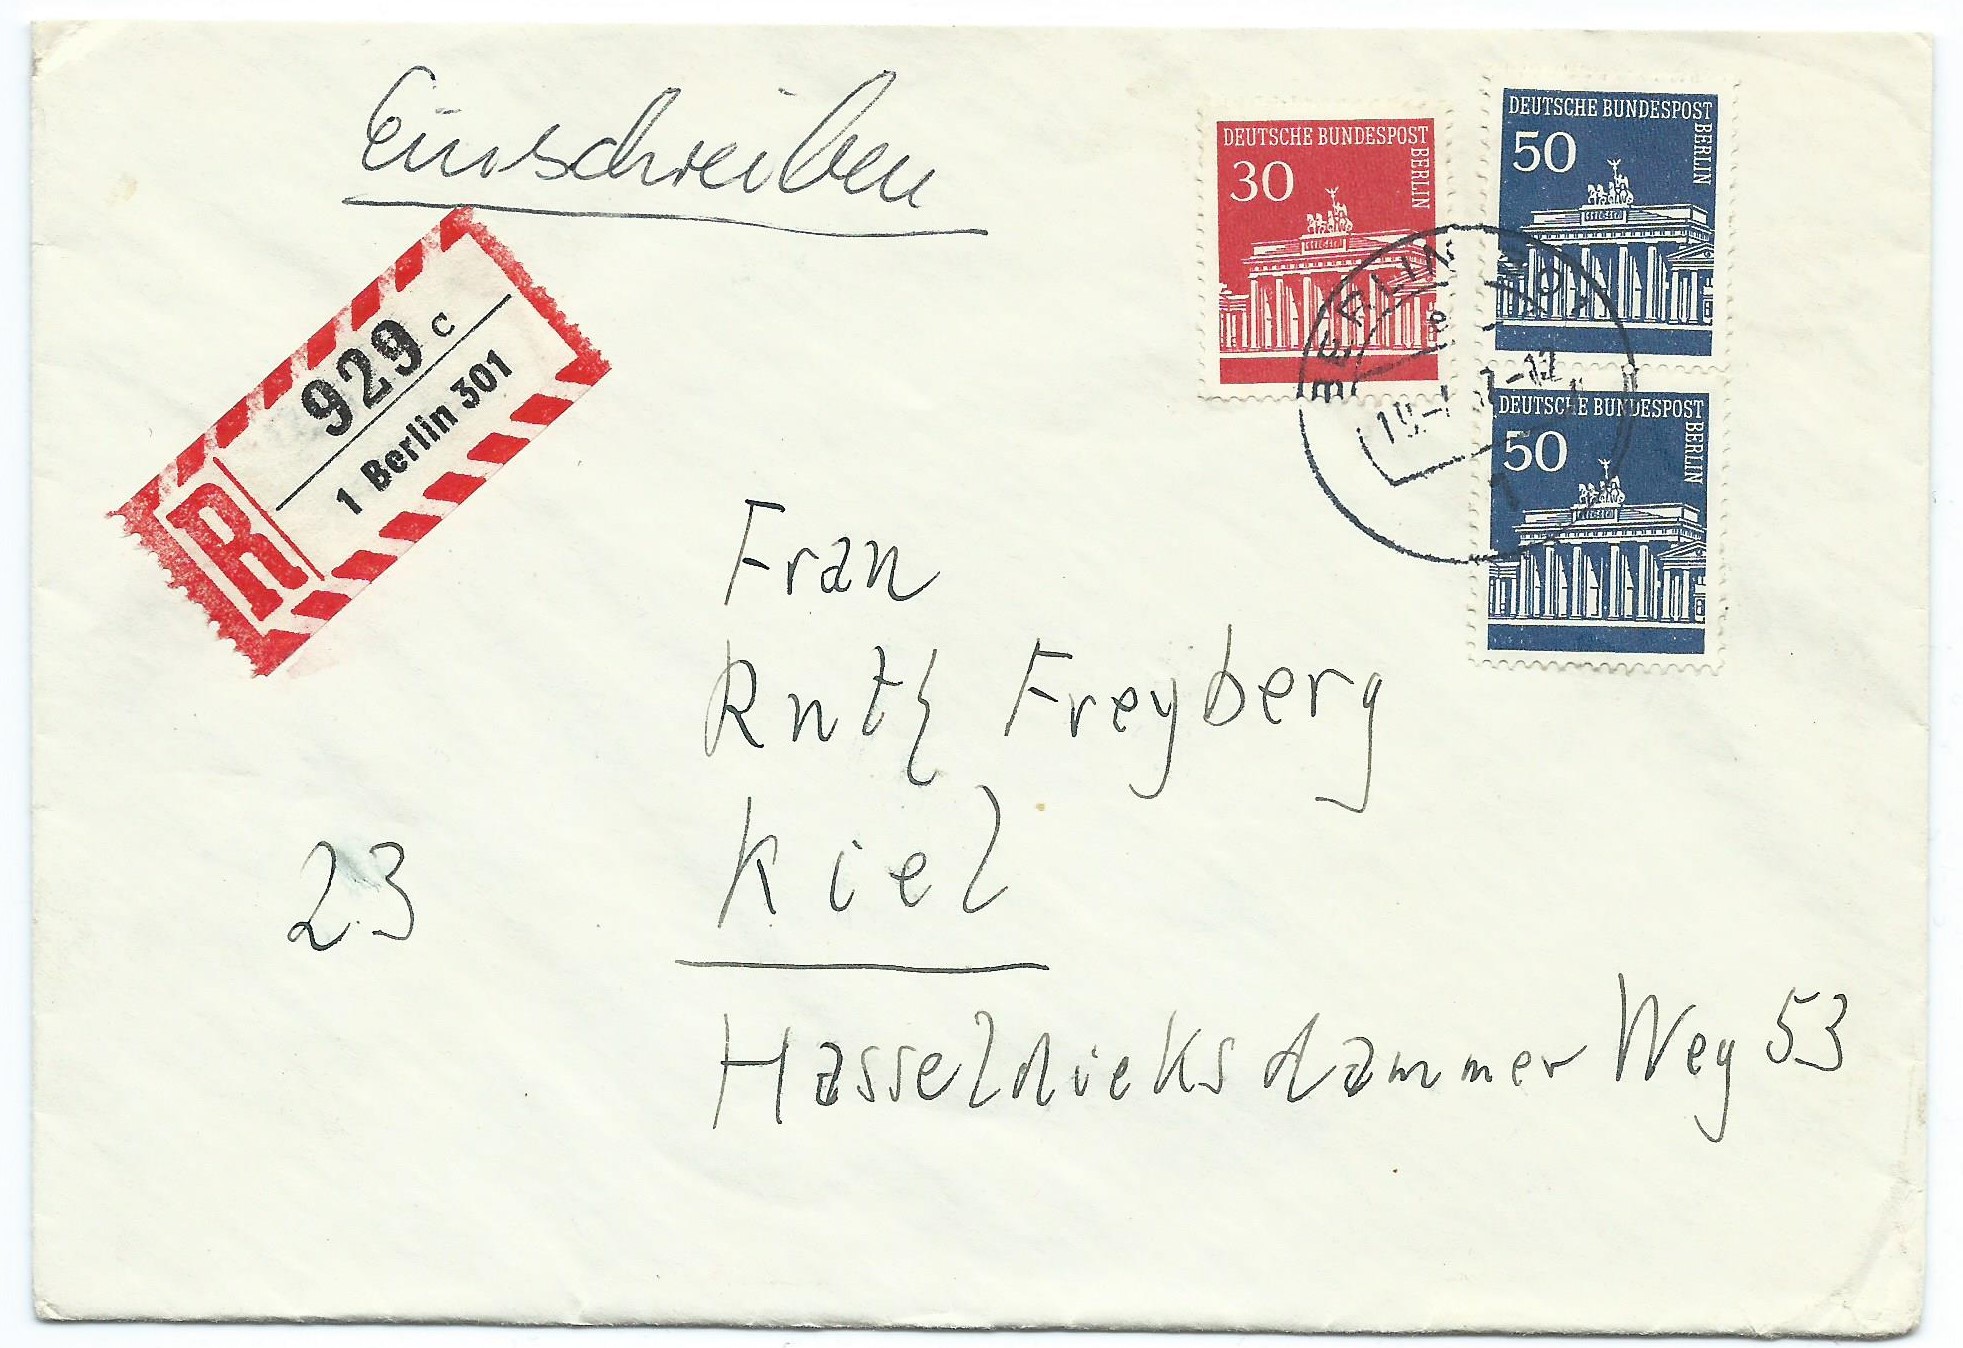 Einschreiben
DEUTSCHE BUNDESPOST
BERLIN
30
DEUTSCHE BUNDESPOST
BERLIN
50
DEUTSCHE BUNDESPOST
BERLIN
50
BERLIN
e
-12
1
929 c
1 Berlin 301
R
Frau
Ruth Freyberg
23 Kiel
Hasseldieksdammer Weg 53